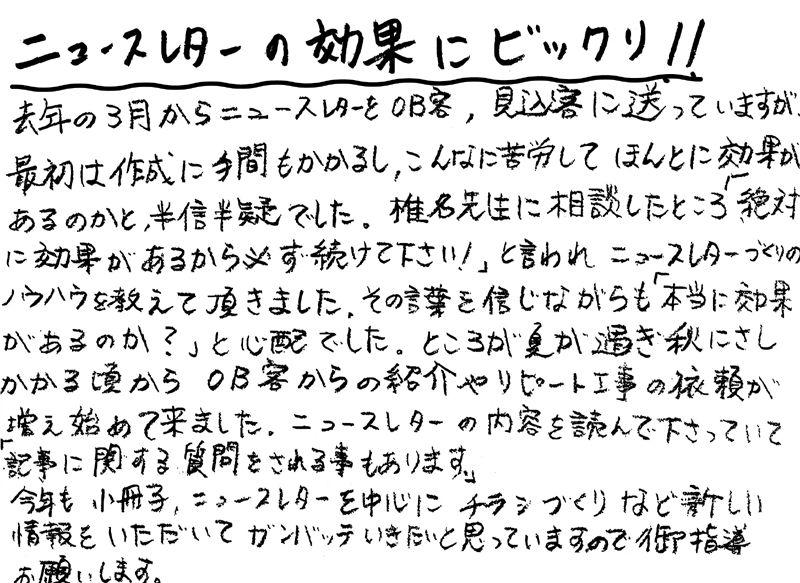 ニュースレターの効果にビックリ!!
去年の3月からニュースレターをOB客,見込客に送っていますが、
最初は作成に手間もかかるし,こんなに苦労してほんとに効果が
あるのかと,半信半疑でした。椎名先生に相談したところ「絶対
に効果があるから必ず続けて下さい!」と言われニュースレターづくりの
ノウハウを教えて頂きました.その言葉を信じながらも「本当に効果
があるのか?」と心配でした。ところが夏が過ぎ秋にさし
かかる頃からOB客からの紹介やリピート工事の依頼が
増え始めて来ました.ニュースレターの内容を読んで下さっていて
「記事に関する質問をされる事もあります。」
今年も小冊子,ニュースレターを中心にチラシづくりなど新しい
情報をいただいてガンバッテいきたいと思っていますので御指導
お願いします。